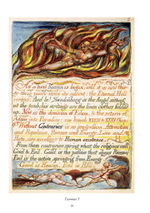 As a new heaven is begun, and it is now thir-
-ty-three years since its advent: the Eternal Hell
revives. And lo! Swedenborg is the Angel sitting
at the tomb: his writings are the linen clothes folded
up. Now is the dominion of Edom, & the return of
Adam into Paradise; see Isaiah XXXIV & XXXV Chap:
Without Contraries is no progression. Attraction
and Repulsion, Reason and Energy, Love and
Hate, are necessary to Human existence.
From these contraries spring what the religious call
Good & Evil. Good is the passive that obeys Reason
Evil is the active springing from Energy.
Good is Heaven. Evil is Hell.